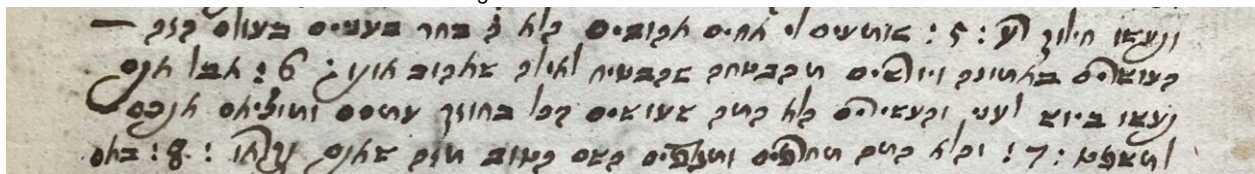 ונעשו חילוק רע : 5 : שומעים לי אחים אהובים הלא ה בחר בעניים בעולם הזה —
העשירים באמונה ויורשים הבטחה שהבטיח לאילה שאהוב אותו : 6 : אבל אתם
נעשו ביוש לעני והעשירים הלא המה עושים הכל בחוזק עמכם ומוציאם אתכם
למשפט : 7 : והלא המה מחרפים ומגדפים השם הטוב הזה שאתם נקראו : 8 : באם